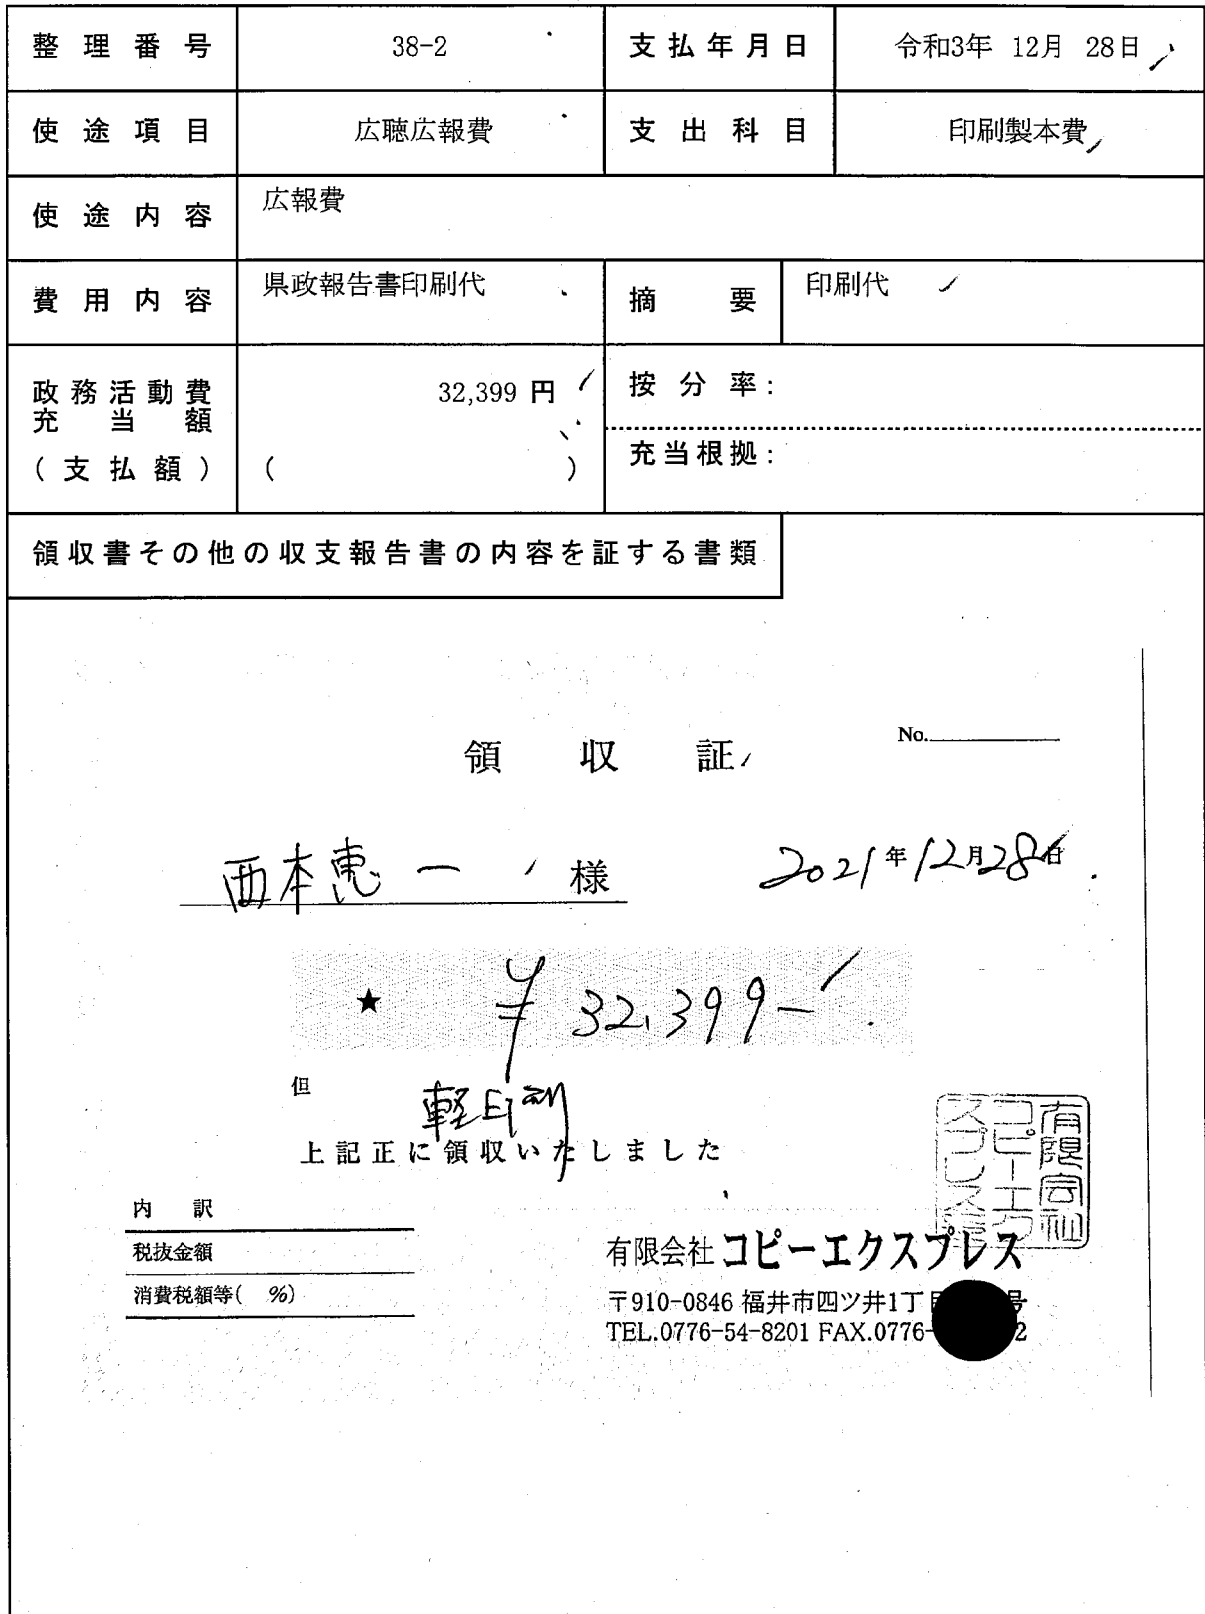 整理番号 38-2 支払年月日 令和3年 12月 28日
使途項目 広聴広報費 支出科目 印刷製本費
使途内容 広報費
費用内容 県政報告書印刷代 摘要 印刷代
政務活動費充当額 32,399 円 按分率:
(支払額) ( ) 充当根拠:
領収書その他の収支報告書の内容を証する書類
領収証
No.
西本恵一 様 2021年12月28日
★ ¥32,399-
但 軽印刷
上記正に領収いたしました
有限会社コピーエクスプレス
内訳
税抜金額
消費税額等( %)
有限会社 コピーエクスプレス
〒910-0846 福井市四ツ井1丁 号
TEL.0776-54-8201 FAX.0776- 2